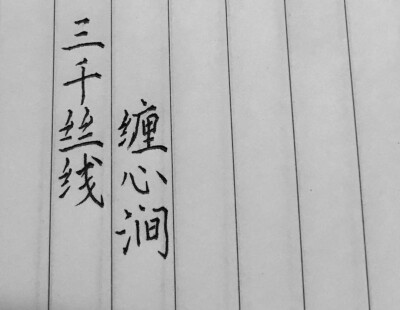 三千丝线
缠心涧